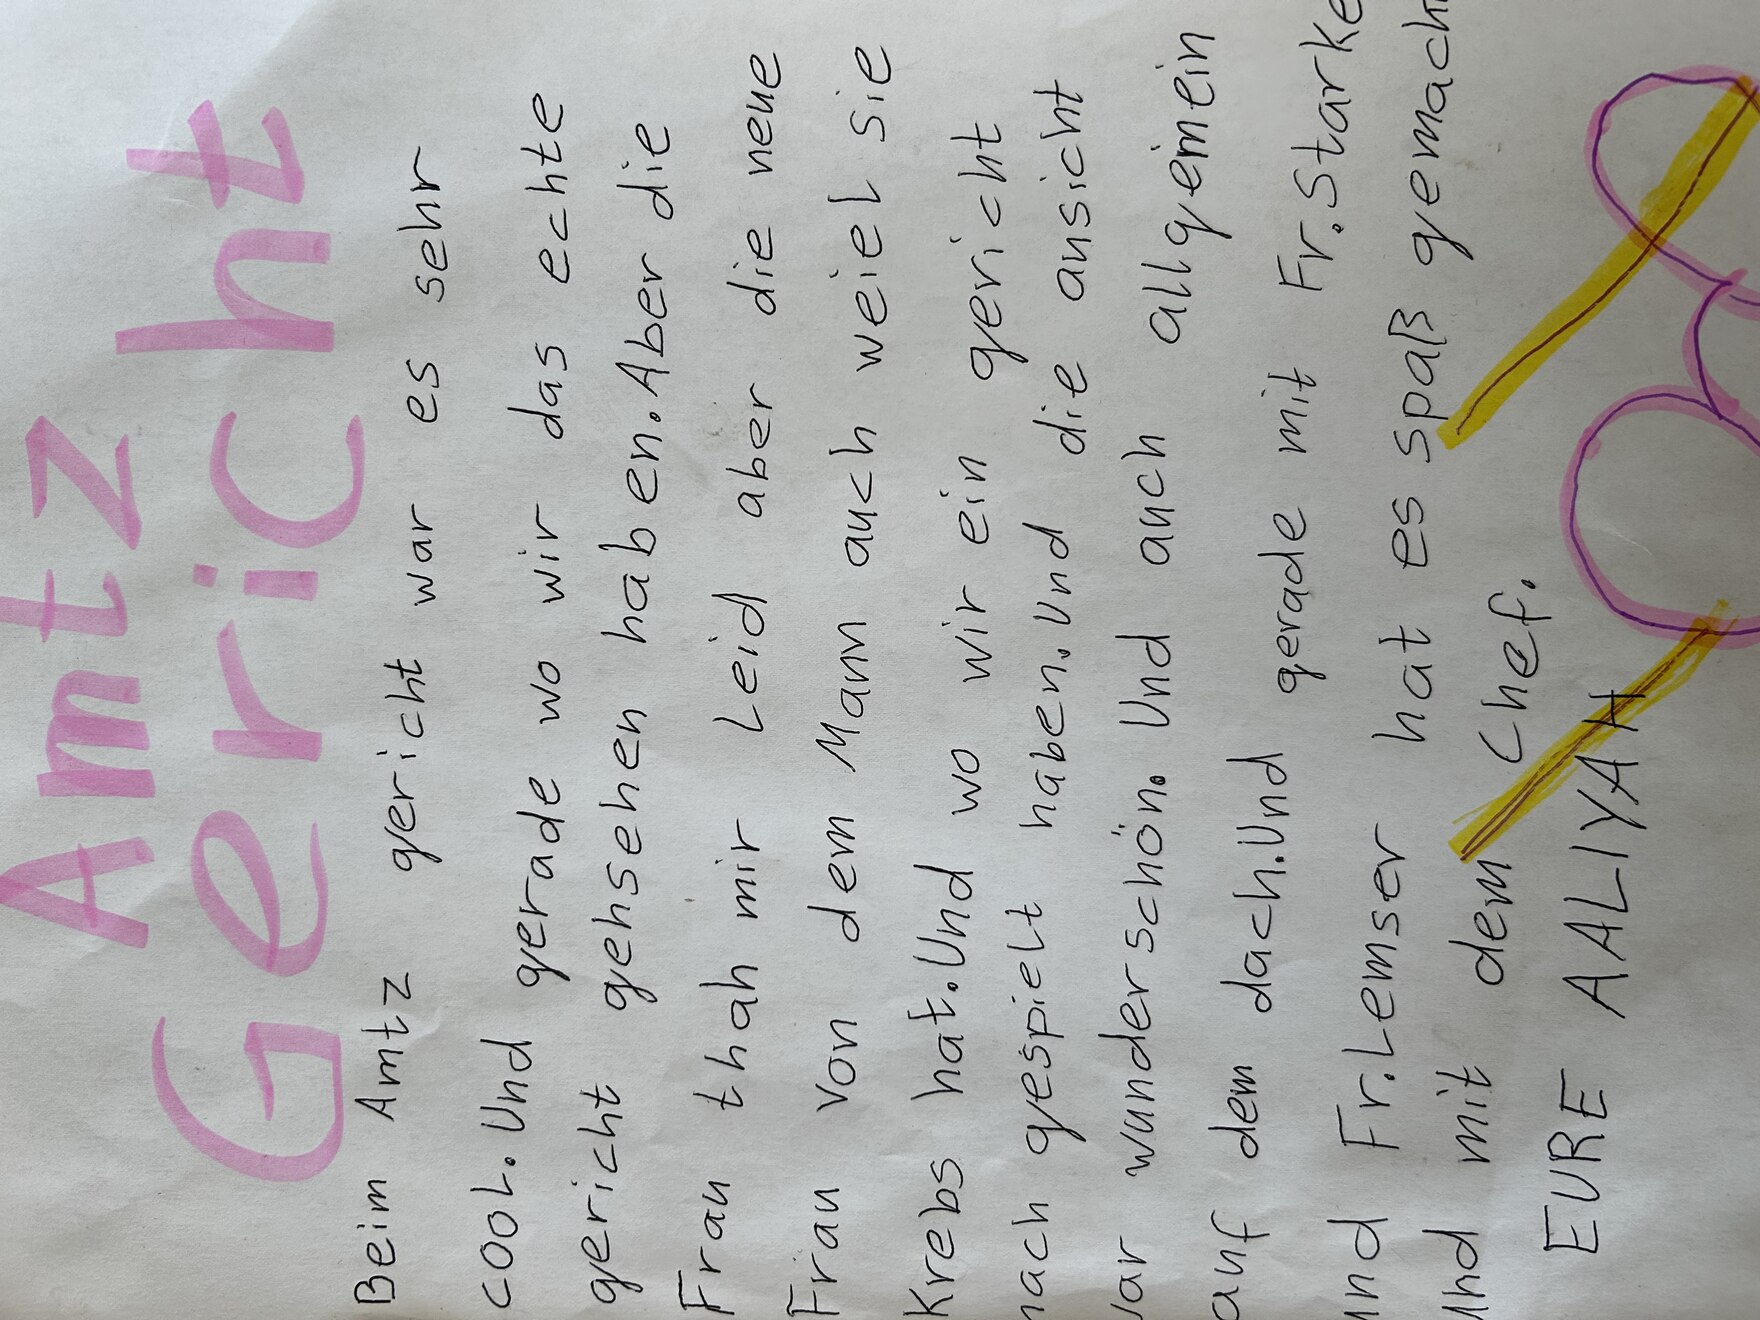 Amtz
Gericht
Beim Amtz gericht war es sehr
cool. Und gerade wo wir das echte
gericht gehsehen haben. Aber die
Frau thah mir Leid aber die neue
Frau von dem Mann auch weiel sie
Krebs hat. Und wo wir ein gericht
nach gespielt haben. Und die ausicht
war wunderschön. Und auch allgemein
auf dem dach. Und gerade mit Fr. Starke
und Fr. Lemser hat es spaß gemach
und mit dem Chef.
EURE AALIYAH